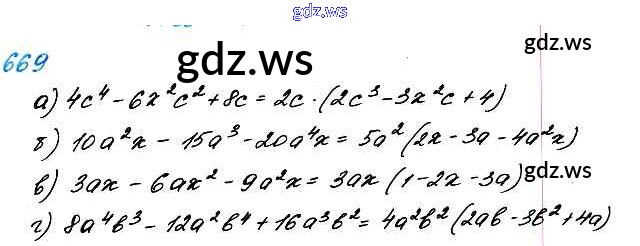 gdz.ws
669
gdz.ws
gdz.ws
а) 4c⁴ - 6x²c² + 8c = 2c · (2c³ - 3x²c + 4)
б) 10a²x - 15a³ - 20a⁴x = 5a² (2x - 3a - 4a²x)
в) 3ax - 6ax² - 9a²x = 3ax (1 - 2x - 3a) gdz.ws
г) 8a⁴b³ - 12a²b⁴ + 16a³b² = 4a²b² (2ab - 3b² + 4a)